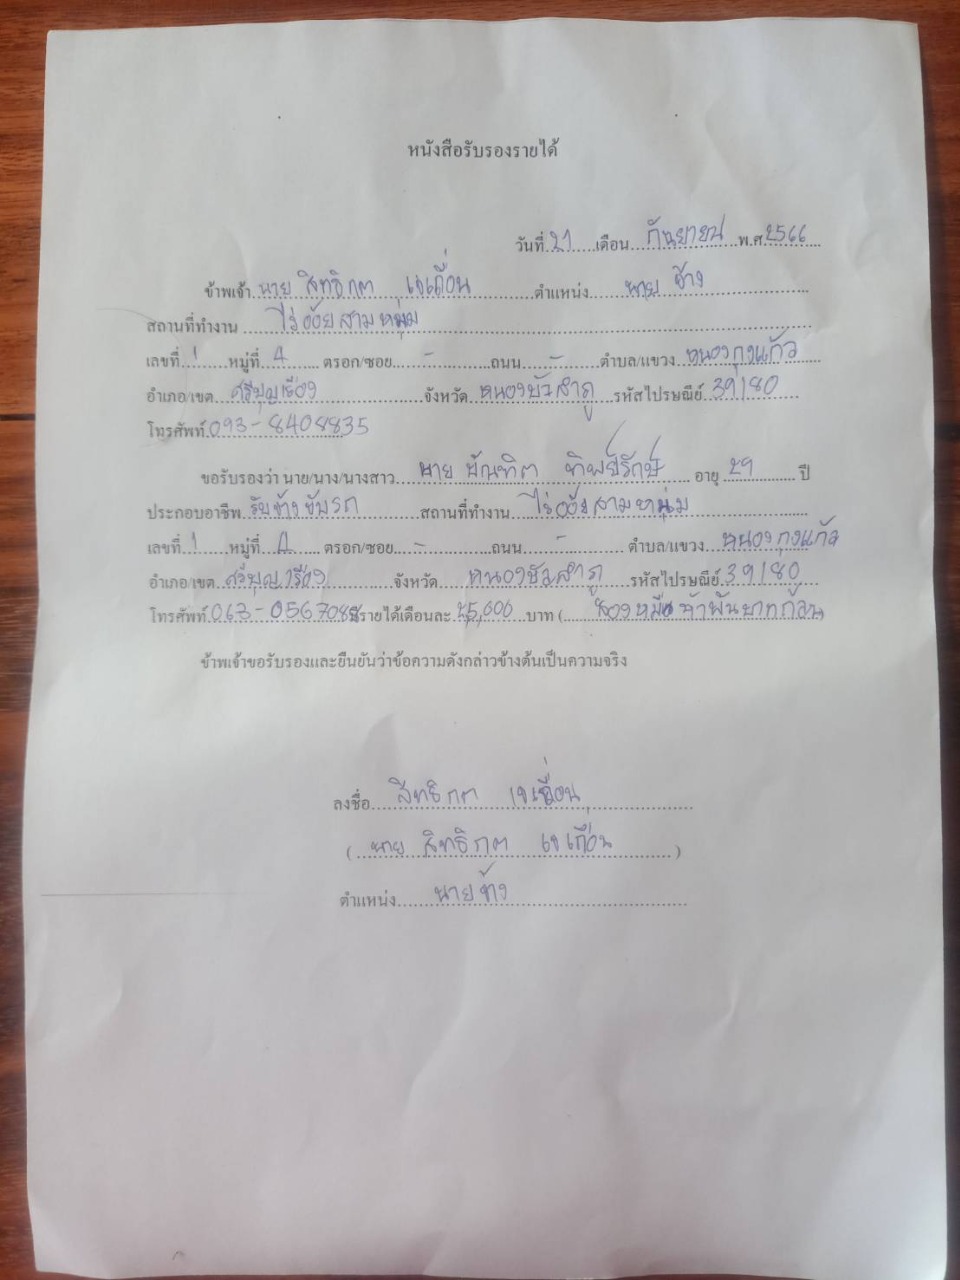 หนังสือรับรองรายได้
วันที่ 21 เดือน กันยายน พ.ศ. 2566
ข้าพเจ้า นาย สิทธิกต เจเถื่อน ตำแหน่ง นาย จ้าง
สถานที่ทำงาน ไร่อ้อยสามหนุ่ม
เลขที่ 1 หมู่ที่ 4 ตรอก/ซอย - ถนน - ตำบล/แขวง หนองกุงแก้ว
อำเภอ/เขต ศรีบุญเรือง จังหวัด หนองบัวลำภู รหัสไปรษณีย์ 39180
โทรศัพท์ 093-8408835
ขอรับรองว่า นาย/นาง/นางสาว นาย บัณฑิต ทิพย์รักษ์ อายุ 29 ปี
ประกอบอาชีพ รับจ้างขับรถ สถานที่ทำงาน ไร่อ้อยสามหนุ่ม
เลขที่ 1 หมู่ที่ 4 ตรอก/ซอย - ถนน - ตำบล/แขวง หนองกุงแก้ว
อำเภอ/เขต ศรีบุญเรือง จังหวัด หนองบัวลำภู รหัสไปรษณีย์ 39180
โทรศัพท์ มีรายได้เดือนละ 25,000 บาท (สองหมื่นห้าพันบาทถ้วน)
ข้าพเจ้าขอรับรองและยืนยันว่าข้อความดังกล่าวข้างต้นเป็นความจริง
ลงชื่อ สิทธิกต เจเถื่อน
( นาย สิทธิกต เจเถื่อน )
ตำแหน่ง นายจ้าง